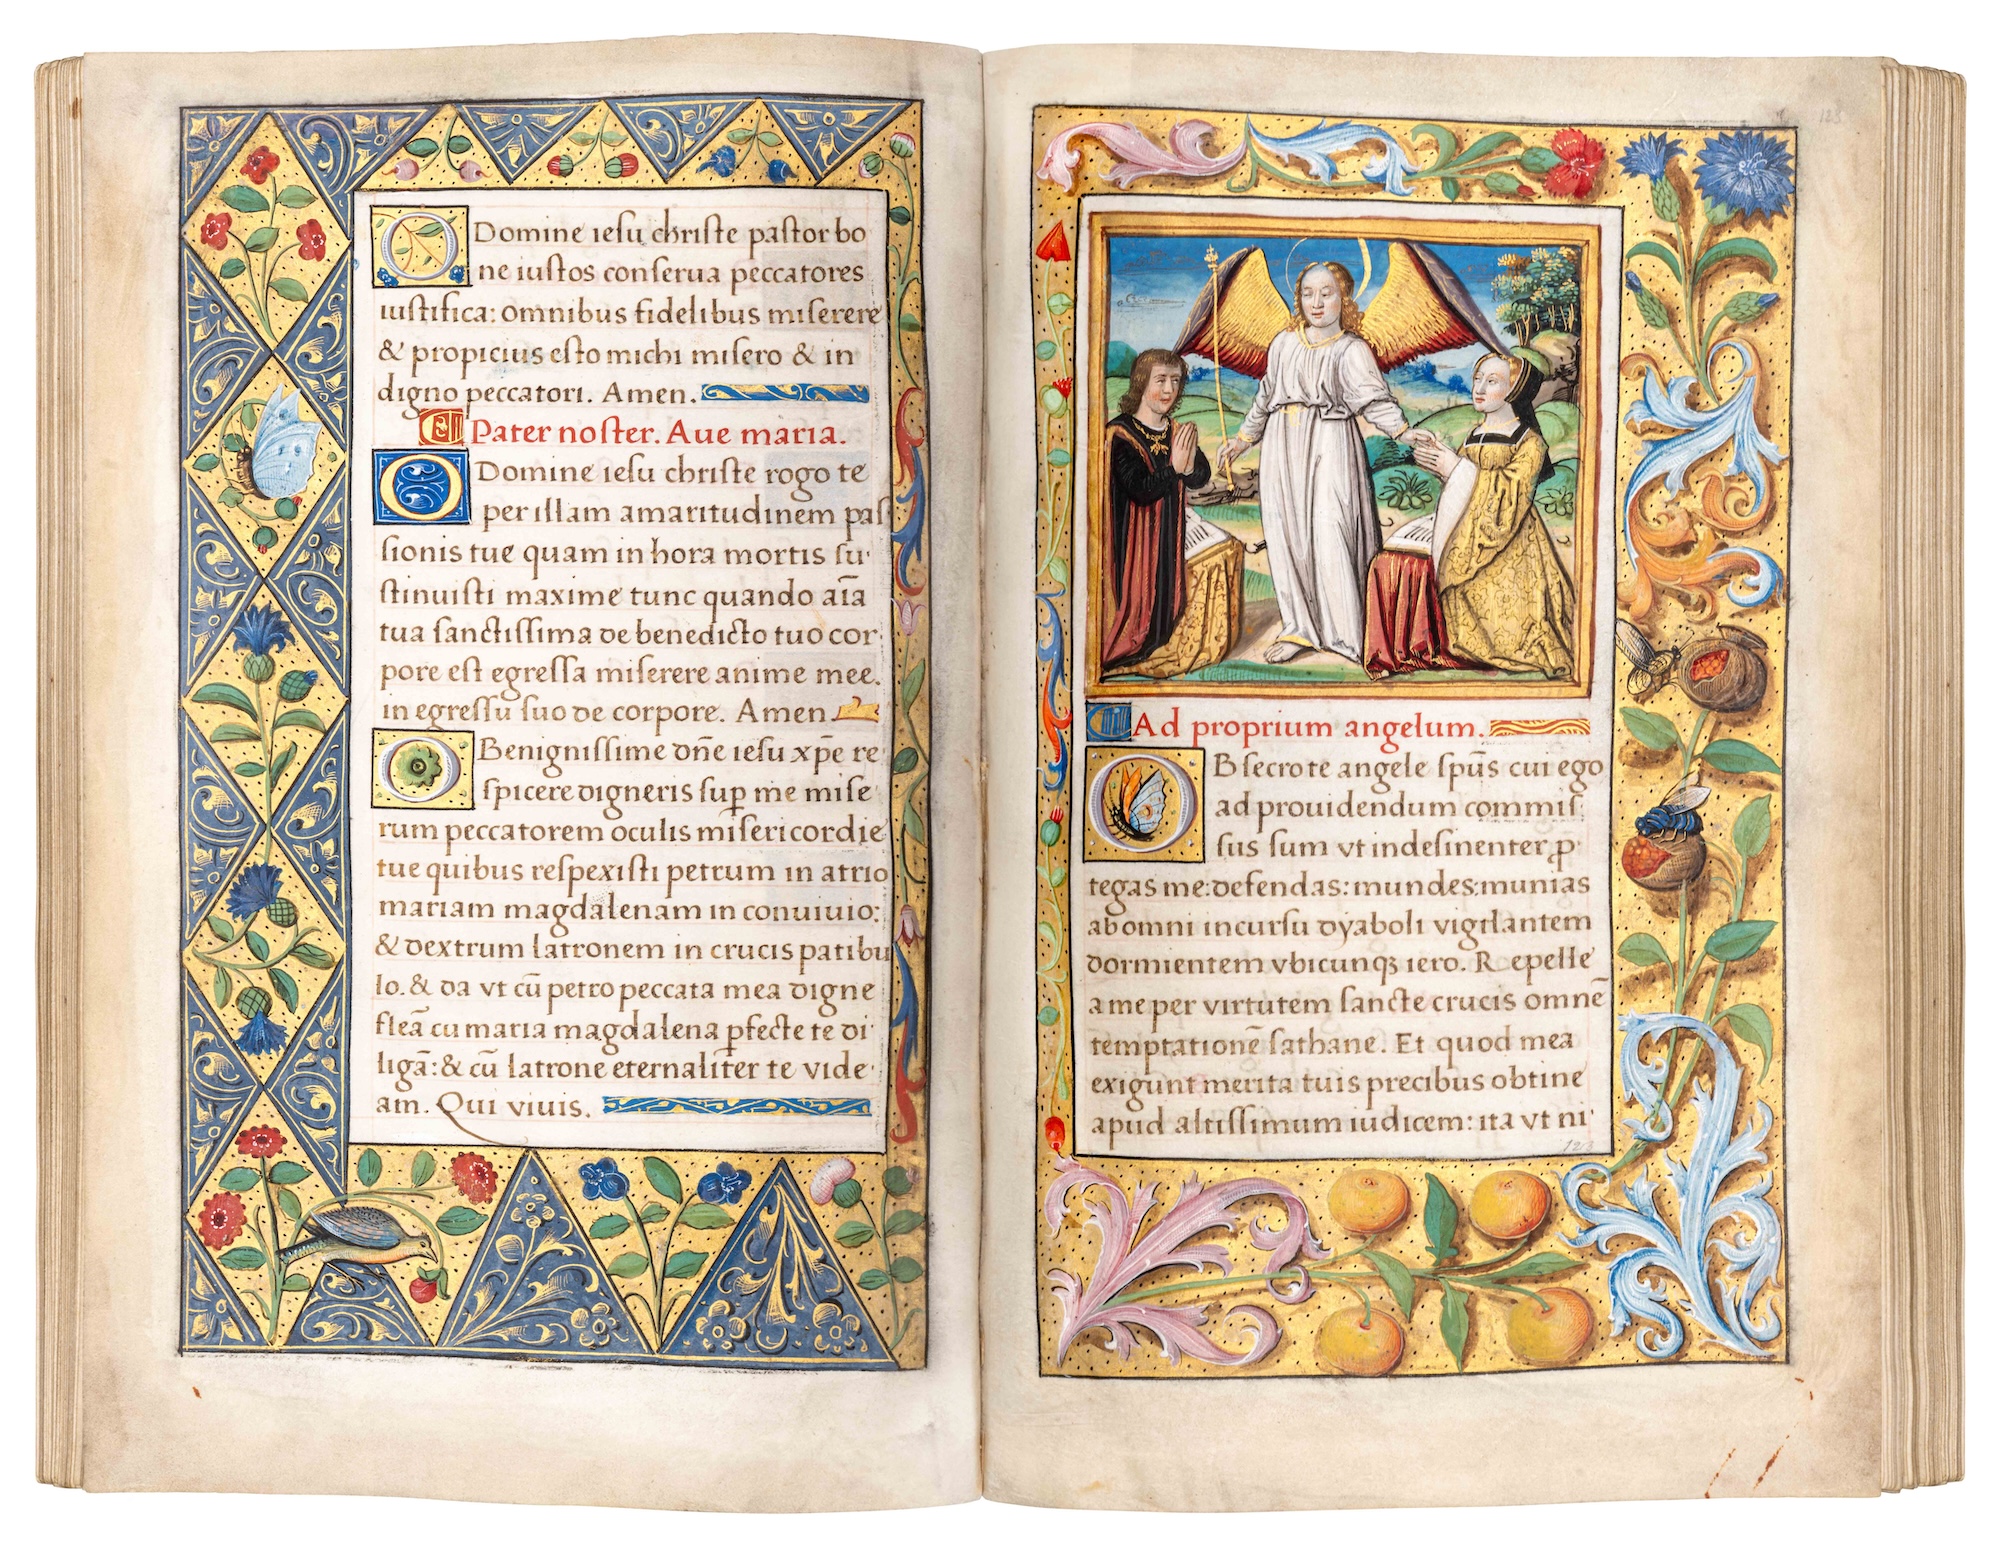 O Domine iesu christe pastor bo
ne iustos conserua peccatores
iustifica: omnibus fidelibus miserere
& propicius esto michi misero & in
digno peccatori. Amen.
Pater noster. Aue maria.
O Domine iesu christe rogo te
per illam amaritudinem pas
sionis tue quam in hora mortis su
stinuisti maxime tunc quando aīa
tua sanctissima de benedicto tuo cor
pore est egressa miserere anime mee.
in egressu suo de corpore. Amen.
O Benignissime dn̄e iesu xp̄e re
spicere digneris sup̱ me mise
rum peccatorem oculis misericordie
tue quibus respexisti petrum in atrio
mariam magdalenam in conuiuio:
& dextrum latronem in crucis patibu
lo. & da vt cū petro peccata mea digne
fleā cu maria magdalena ꝑfecte te di
ligā: & cū latrone eternaliter te vide
am. Qui viuis.
123
Ad proprium angelum.
OBsecro te angele sp̄us cui ego
ad prouidendum commis
sus sum vt indesinenter ꝓ
tegas me: defendas: mundes: munias
ab omni incursu dyaboli vigilantem
dormientem vbicunqꝫ iero. Repelle
a me per virtutem sancte crucis omnē
temptationē sathane. Et quod mea
exigunt merita tuis precibus obtine
apud altissimum iudicem: ita vt ni
123